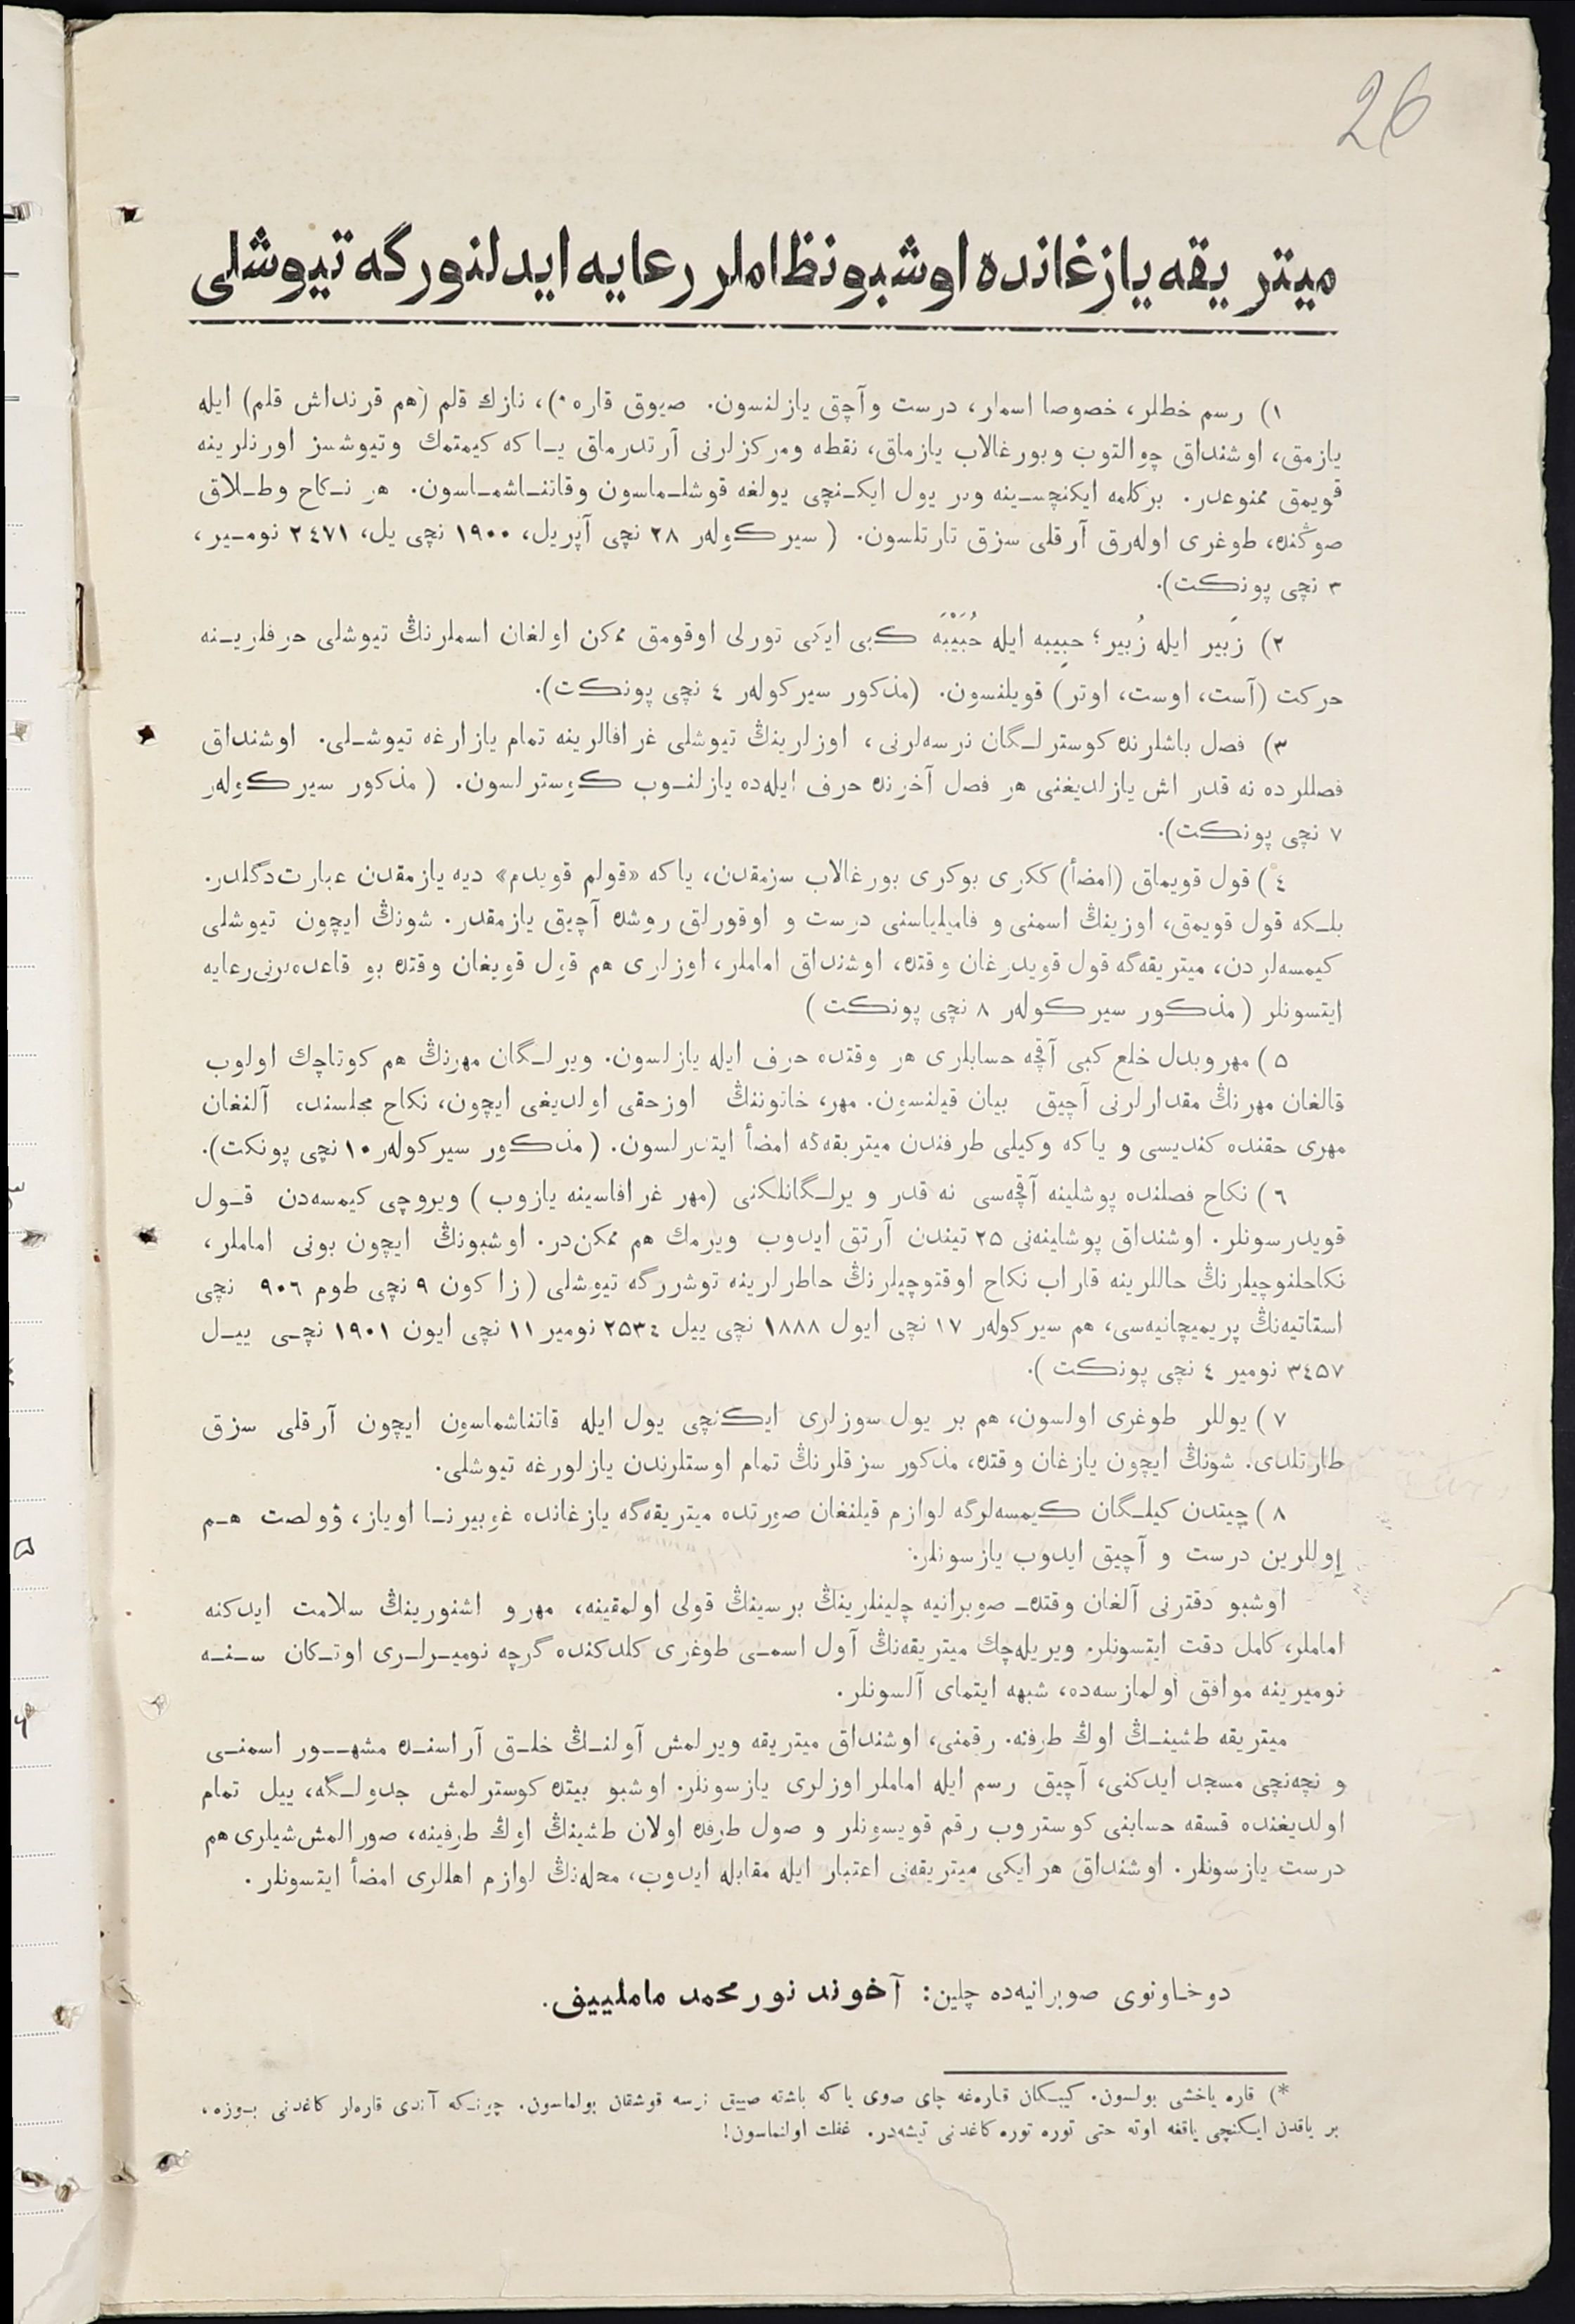 26
ميتريقه يازغانده اوشبو نظاملر رعايه ايدلنورگه تيوشلى
١) رسم خطلر، خصوصا اسملر، درست و آچق يازلنسون. صيوق قاره *)، نازك قلم (هم قرنداش قلم) ايله
يازمق، اوشنداق چوالتوب وبورغالاب يازماق، نقطه ومركزلرنى آرتدرماق يـا كه كيمتمك وتيوشسز اورنلرينه
قويمق ممنوعدر. بركلمه ايكنچسـينه وبر يول ايكـنچى يولغه قوشلـماسون وقاتنـاشمـاسون. هر نـكاح وطـلاق
صوڭنده، طوغرى اوله‌رق آرقلى سزق تارتلسون. (سيركوله‌ر ٢٨ نچى آپريل، ١٩٠٠ نچى يل، ٢٤٧١ نومـير،
٣ نچى پونكت).
٢) زَبير ايله زُبير؛ حبِيبه ايله حُبَيْبَه كبى ايكى تورلى اوقومق ممكن اولغان اسملرنڭ تيوشلى حرفلريـنه
حركت (آست، اوست، اوتر) قويلنسون. (مذكور سيركوله‌ر ٤ نچى پونكت).
٣) فصل باشلرنده كوسترلـگان نرسه‌لرنى، اوزلرينڭ تيوشلى غرافالرينه تمام يازارغه تيوشـلى. اوشنداق
فصللرده نه قدر اش يازلديغنى هر فصل آخرنده حرف ايله‌ده يازلنـوب كوسترلسون. (مذكور سيركوله‌ر
٧ نچى پونكت).
٤) قول قويماق (امضأ) ككرى بوكرى بورغالاب سزمقدن، ياكه «قولم قويدم» ديه يازمقدن عبارت دگلدر.
بلـكه قول قويمق، اوزينڭ اسمنى و فاميلياسنى درست و اوقورلق روشده آچيق يازمقدر. شونڭ ايچون تيوشلى
كيمسه‌لردن، ميتريقه‌گه قول قويدرغان وقتده، اوشنداق اماملر، اوزلرى هم قول قويغان وقتده بو قاعده‌لرنى رعايه
ايتسونلر (مذكور سيركوله‌ر ٨ نچى پونكت)
٥) مهر وبدل خلع كبى آقچه حسابلرى هر وقتده حرف ايله يازلسون. ويرلـگان مهرنڭ هم كوتاچك اولوب
قالغان مهرنڭ مقدارلرنى آچيق بيان قيلنسون. مهر، خاتوننڭ اوزحقى اولديغى ايچون، نكاح مجلسنده، آلنغان
مهرى حقنده كنديسى و ياكه وكيلى طرفندن ميتريقه‌گه امضأ ايتدرلسون. (مذكور سيركوله‌ر ١٠ نچى پونكت).
٦) نكاح فصلنده پوشلينه آقچه‌سى نه قدر ويرلـگانلكنى (مهر غرافاسينه يازوب) ويروچى كيمسه‌دن قـول
قويدرسونلر. اوشنداق پوشلينه‌نى ٢٥ تيندن آرتق ايدوب ويرمك هم ممكن‌در. اوشبونڭ ايچون بونى اماملر،
نكاحلنوچيلرنڭ حاللرينه قاراب نكاح اوقتوچيلرنڭ خاطرلرينه توشررگه تيوشلى (زاكون ٩ نچى طوم ٩٠٦ نچى
استاتيه‌نڭ پريميچانيه‌سى، هم سيركوله‌ر ١٧ نچى ايول ١٨٨٨ نچى ييل ٢٥٣٤ نومير ١١ نچى ايون ١٩٠١ نچـى ييـل
٣٤٥٧ نومير ٤ نچى پونكت).
٧) يوللر طوغرى اولسون، هم بر يول سوزلرى ايكنچى يول ايله قاتناشماسون ايچون آرقلى سزق
طارتلدى. شونڭ ايچون يازغان وقتده، مذكور سزقلرنڭ تمام اوستلرندن يازلورغه تيوشلى.
٨) چيتدن كيلـگان كيمسه‌لرگه لوازم قيلنغان صورتده ميتريقه‌گه يازغانده غوبيرنـا اوياز، ۋولصت هـم
اوللرين درست و آچيق ايدوب يازسونلر.
اوشبو دفترنى آلغان وقتده صوبرانيه چلينلرينڭ برسينڭ قولى اولمقينه، مهر و اشنورينڭ سلامت ايدكنه
اماملر، كامل دقت ايتسونلر. ويريله‌چك ميتريقه‌نڭ آول اسمـى طوغرى كلدكنده گرچه نوميـرلـرى اوتـكان سـنـه
نوميرينه موافق اولمازسه‌ده، شبهه ايتماى آلسونلر.
ميتريقه طشينـڭ اوڭ طرفنه. رقمنى، اوشنداق ميتريقه ويرلمش آولنـڭ خلـق آراسنـده مشهــور اسمنـى
و نچه‌نچى مسجد ايدكنى، آچيق رسم ايله اماملر اوزلرى يازسونلر. اوشبو بيتده كوسترلمش جدولـگه، ييل تمام
اولديغنده قسقه حسابنى كوستروب رقم قويسونلر و صول طرفده اولان طشينڭ اوڭ طرفينه، صورالمش شيلرى هم
درست يازسونلر. اوشنداق هر ايكى ميتريقه‌نى اعتبار ايله مقابله ايدوب، محله‌نڭ لوازم اهللرى امضأ ايتسونلر.
دوخاونوى صوبرانيه‌ده چلين: آخوند نورمحمد مامليـيف.
*) قاره ياخشى بولسون. كيبـكان قاره‌غه چاى صوى ياكه باشقه صييق نرسه قوشقان بولماسون. چونـكه آندى قاره‌لر كاغدنى بـوزه،
بر ياقدن ايكنچى ياققه اوته حتى توره توره كاغدنى تيشه‌در. غفلت اولنماسون!